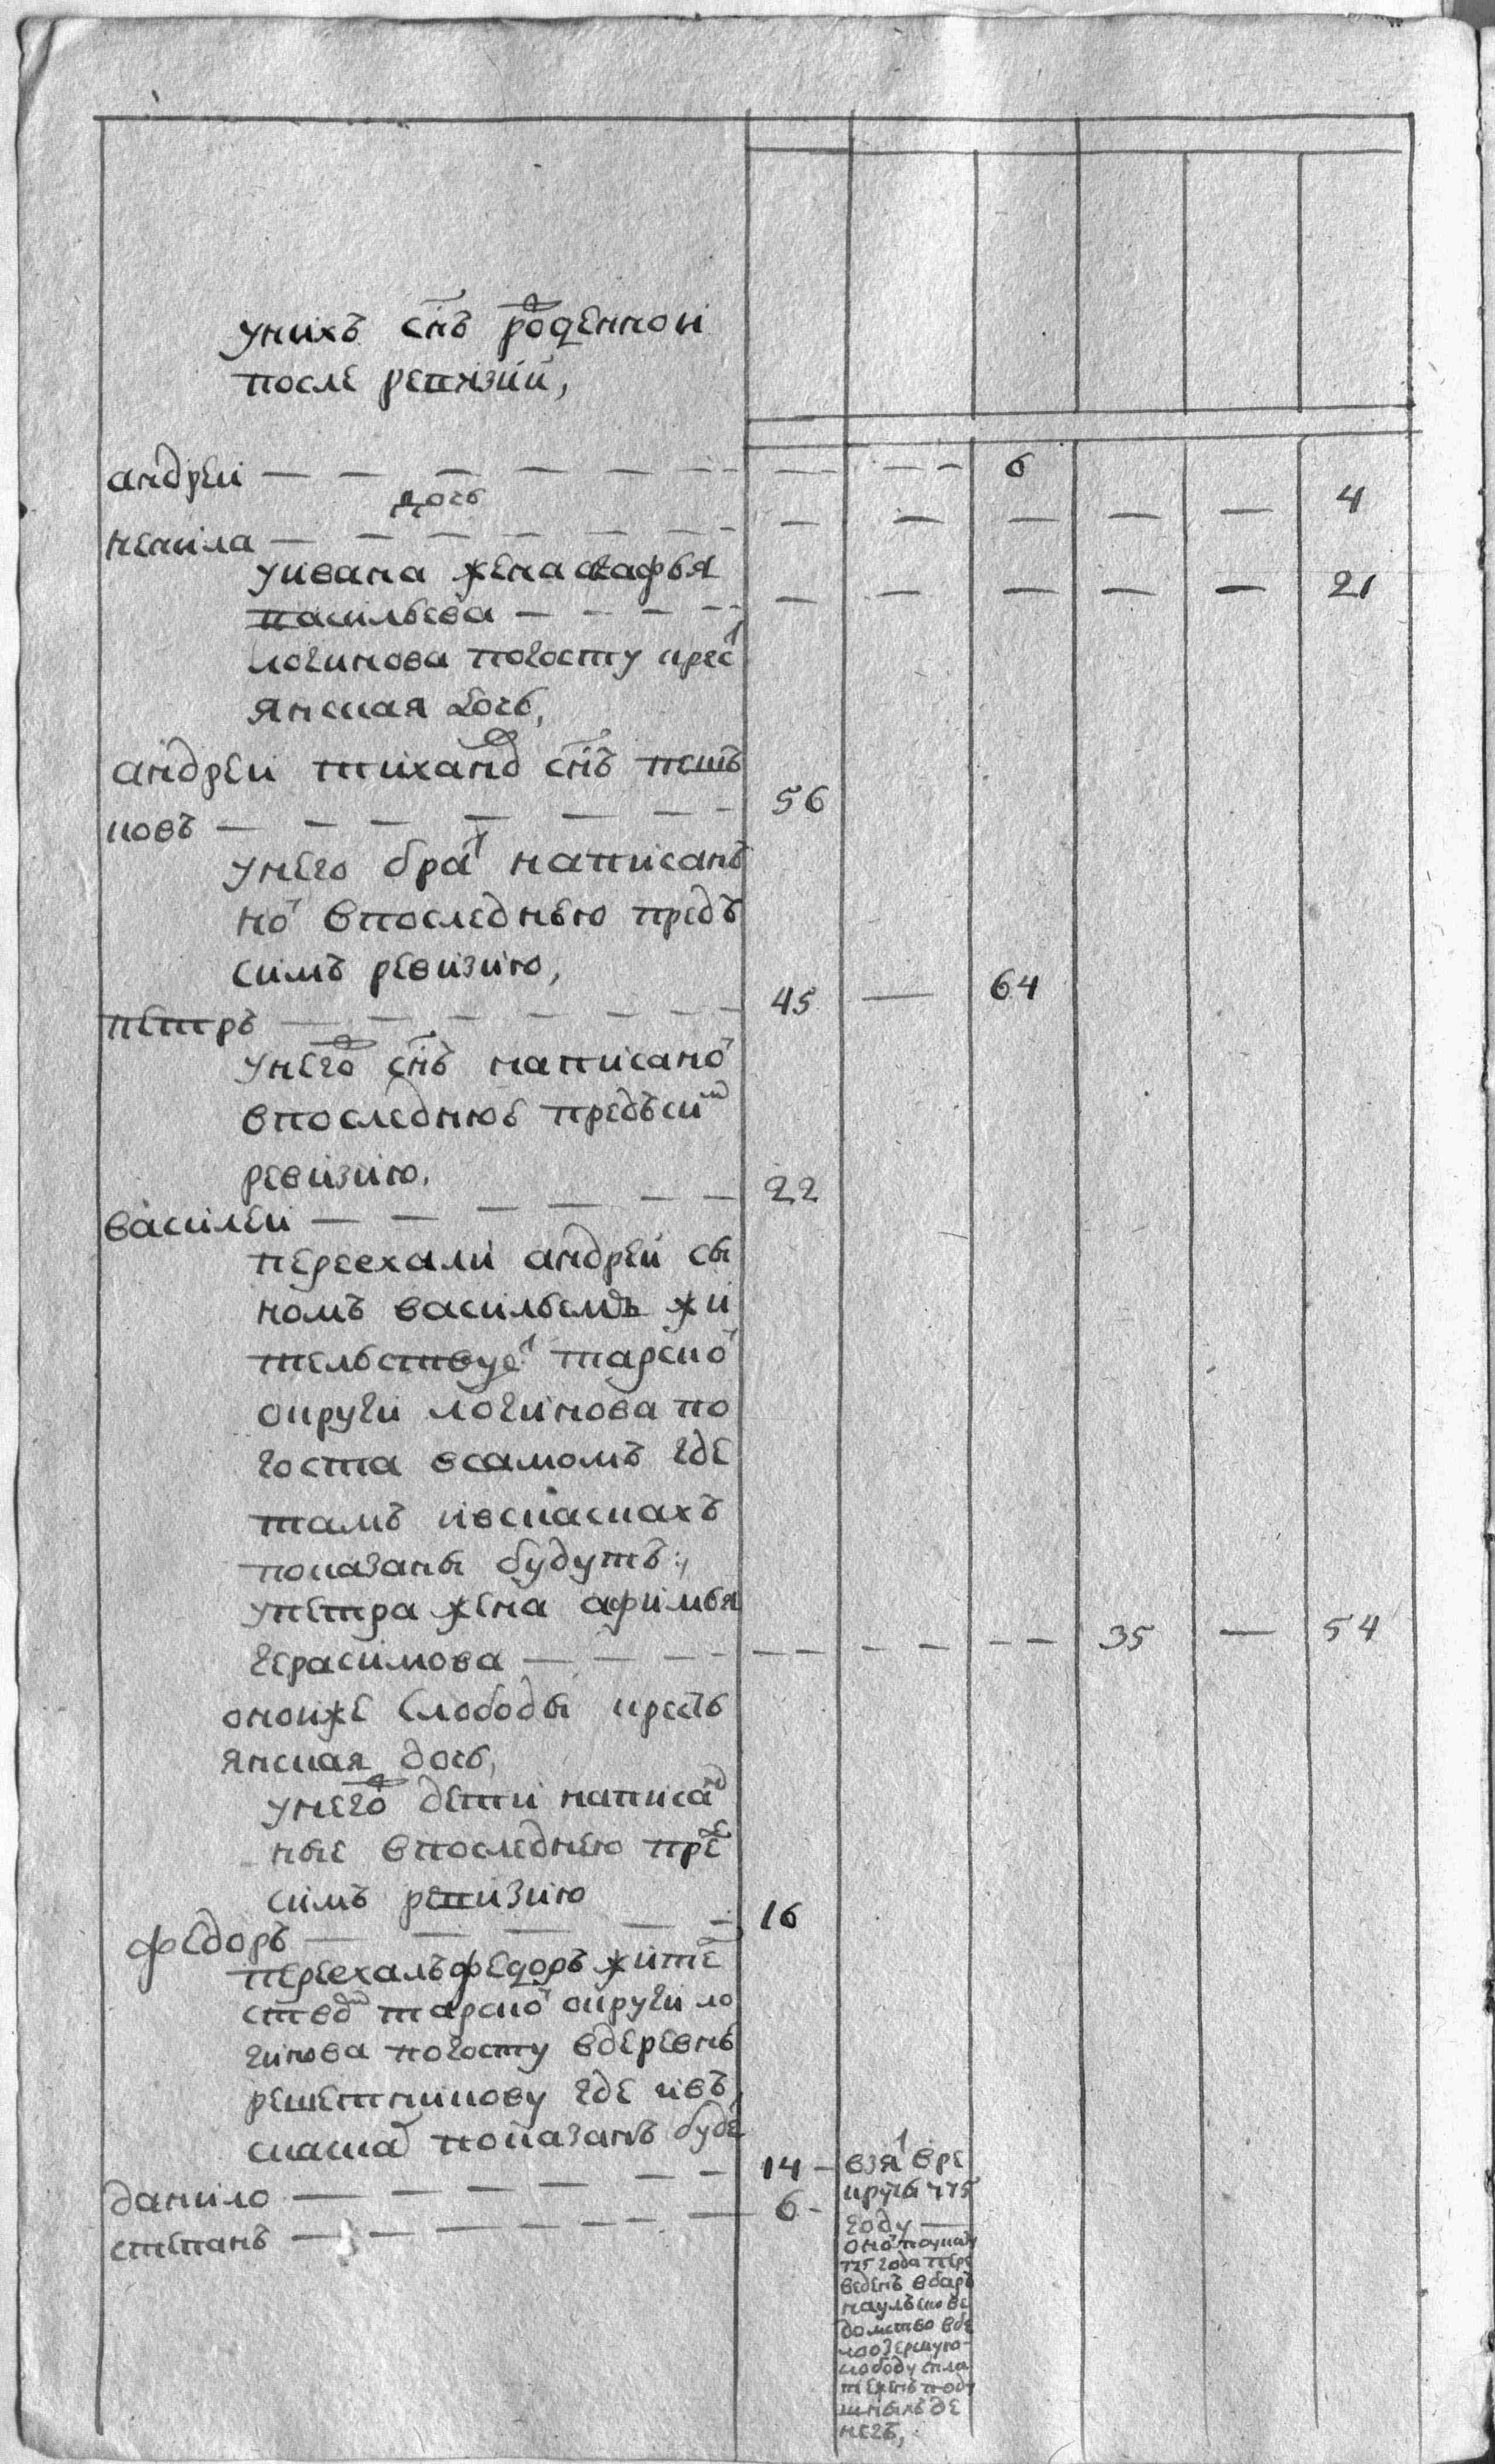 унихъ снъ роденнои
после ревизии,
андреи — — — — — — — — — — 6
дочь
ненила — — — — — — — — — — — — 4
уивана жена агафья
васильева — — — — — — — — — 21
логинова погосту крест
янская дочь,
андреи тиханов снъ пеш
ковъ — — — — — — 56
унего брат написанъ
но впоследнею предъ
симъ ревизию,
петръ — — — — — — 45 — 64
унего снъ написано
впоследнюе предъсим
ревизию.
василеи — — — — — 22
переехали андреи сы
номъ васильемъ жи
тельствует тарско
округи логинова по
госта всамомъ где
тамъ ивскаскахъ
показаны будутъ:,
упетра жена афимья
герасимова — — — — — — — — — 35 — 54
оноиже слободы крестъ
янская дочь,
унего дети написан
ные впоследнею пред
симъ ревизию
федоръ — — — — — 16
переехалъ федоръ жите
ством тарско округи ло
гинова погосту вдеревнѣ
решетникову где ивъ
скаска показанъ буде
данило — — — — — 14 — взят вре
круты 775
году —
степанъ — — — — — — 6 -
775 года пере
веденъ вбар
наулско ве
домство вбе
лоозерскую
слободу спла
тежемъ поду
шныхъ де
негъ,